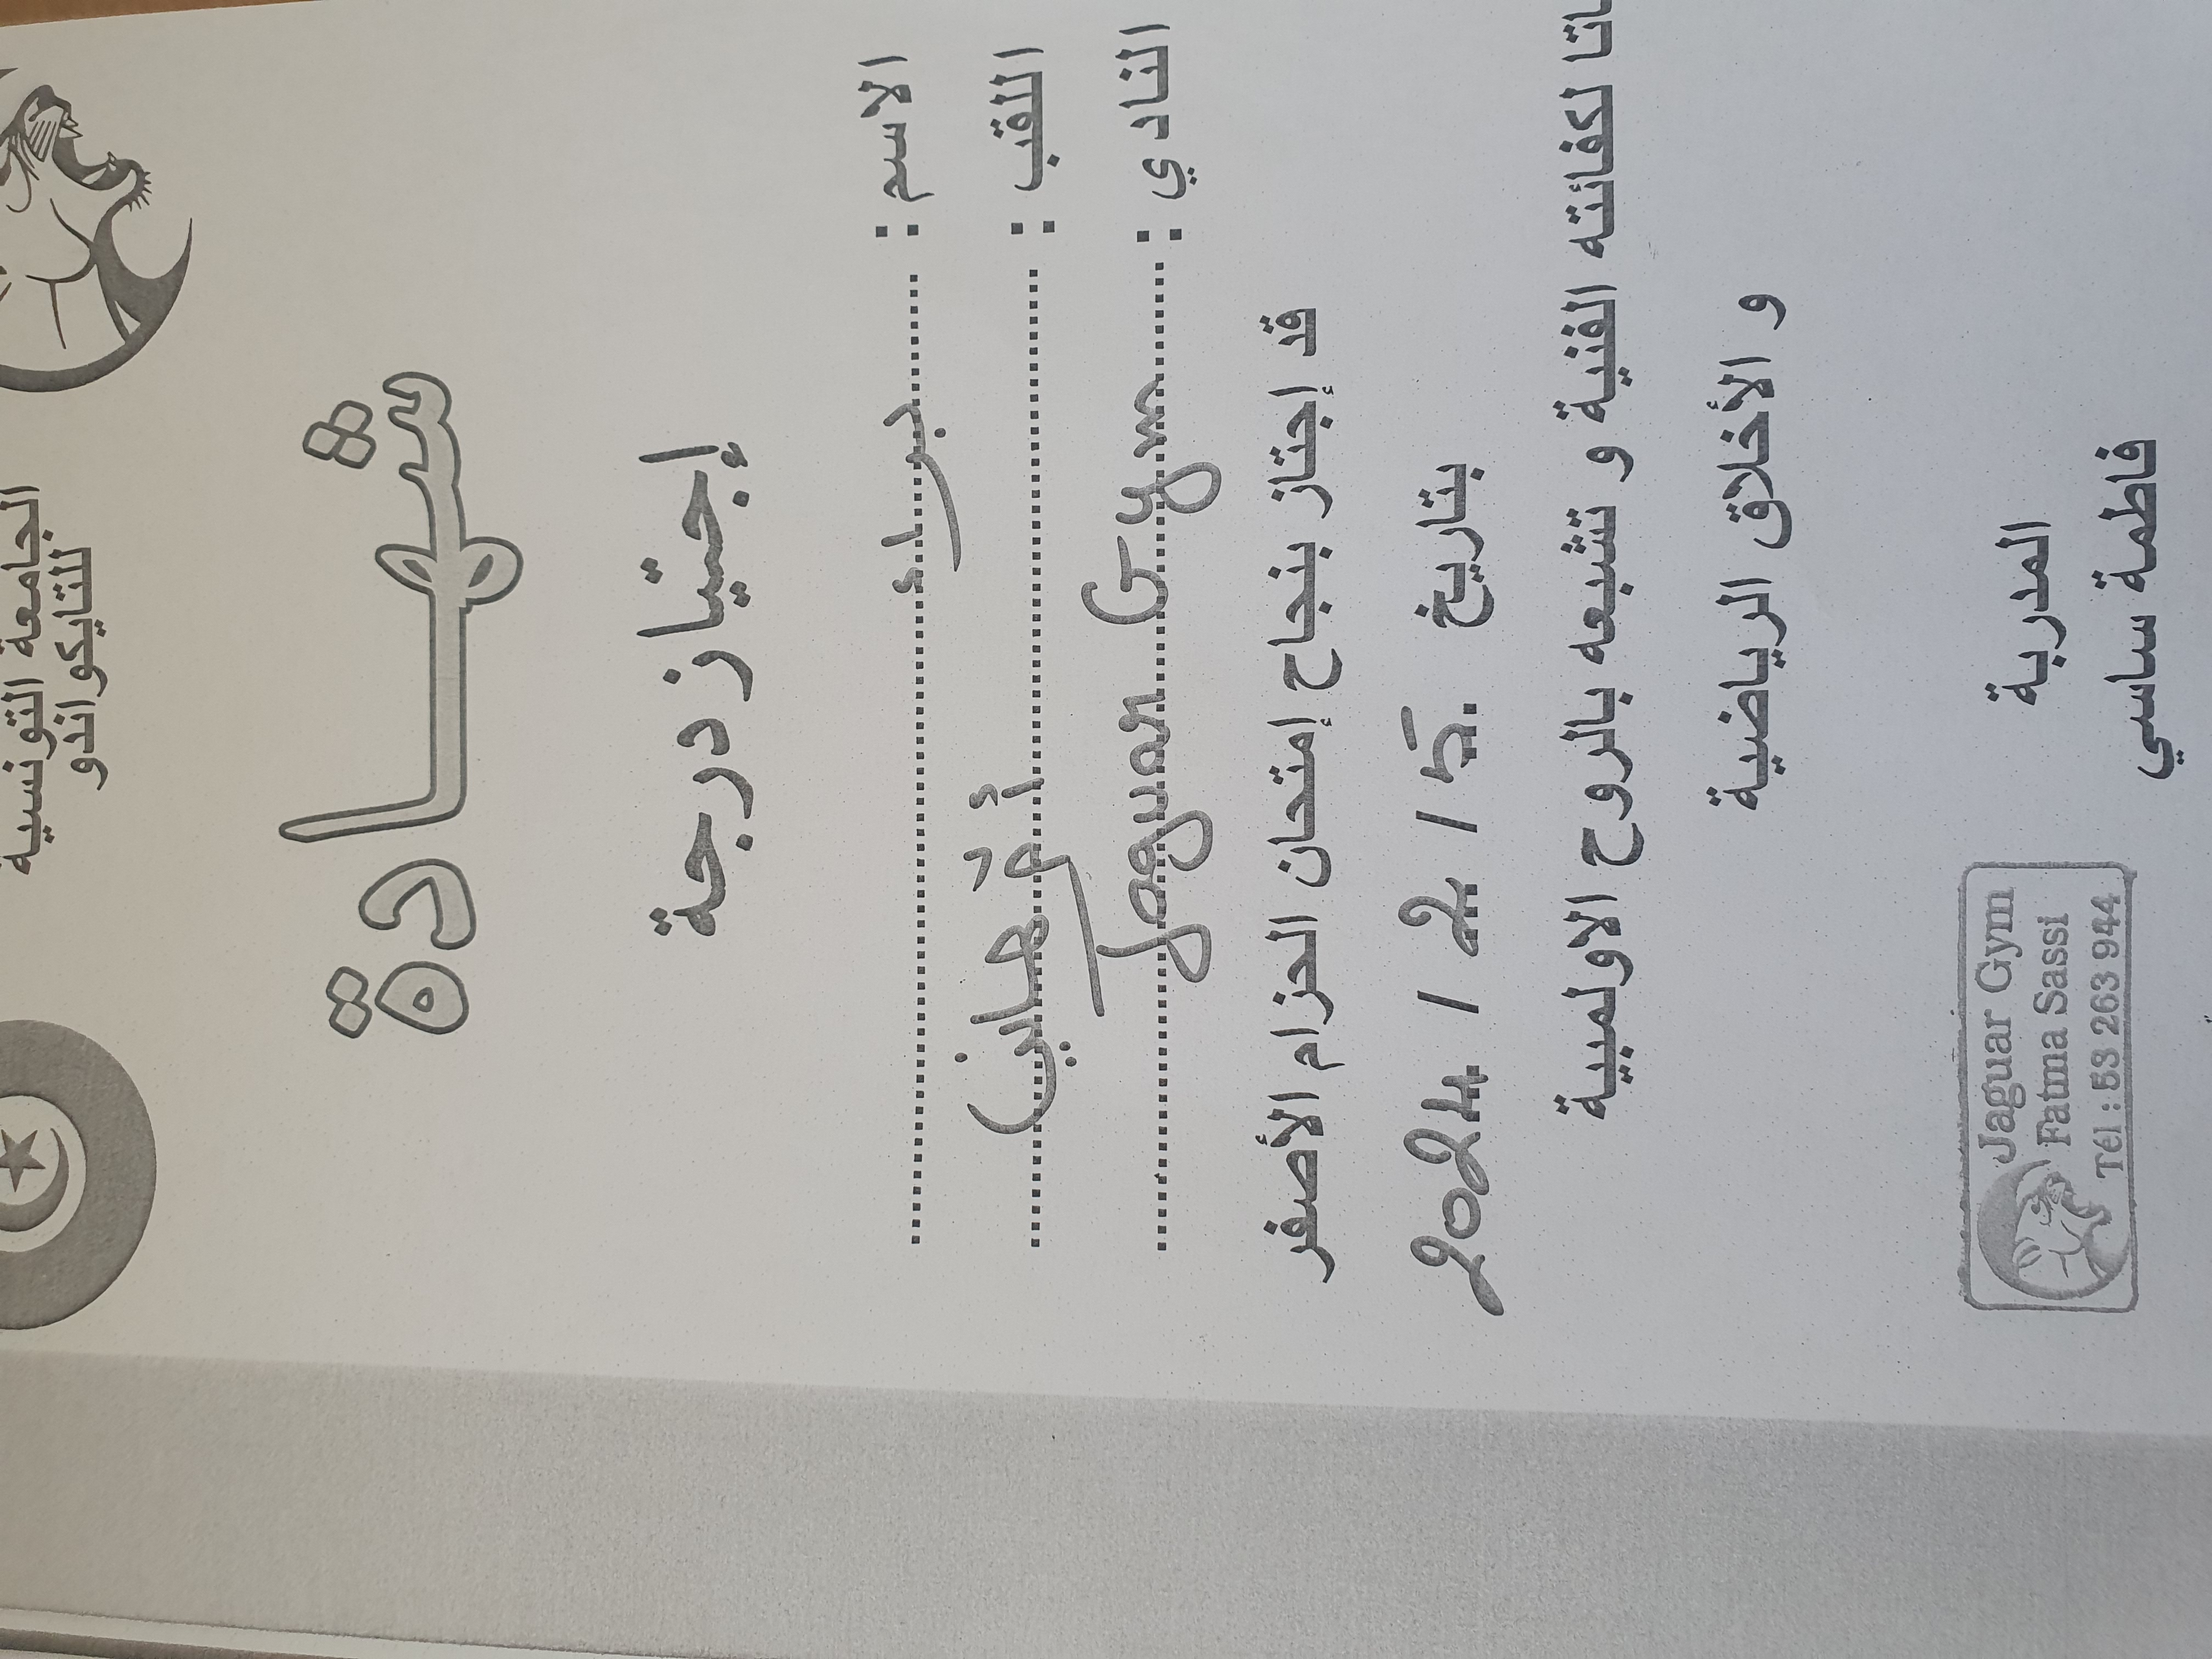 الجامعة التونسية
للتايكواندو
شهادة
إجتياز درجة
الاسم :
اللقب :
النادي : Jaguar Gym
قد إجتاز بنجاح إمتحان الحزام الأصفر
بتاريخ 2024 / 2 / 15
لكفائته الفنية و تشبعه بالروح الاولمبية
و الأخلاق الرياضية
المدربة
فاطمة ساسي
Jaguar Gym
Fatma Sassi
Tél : 53 263 944